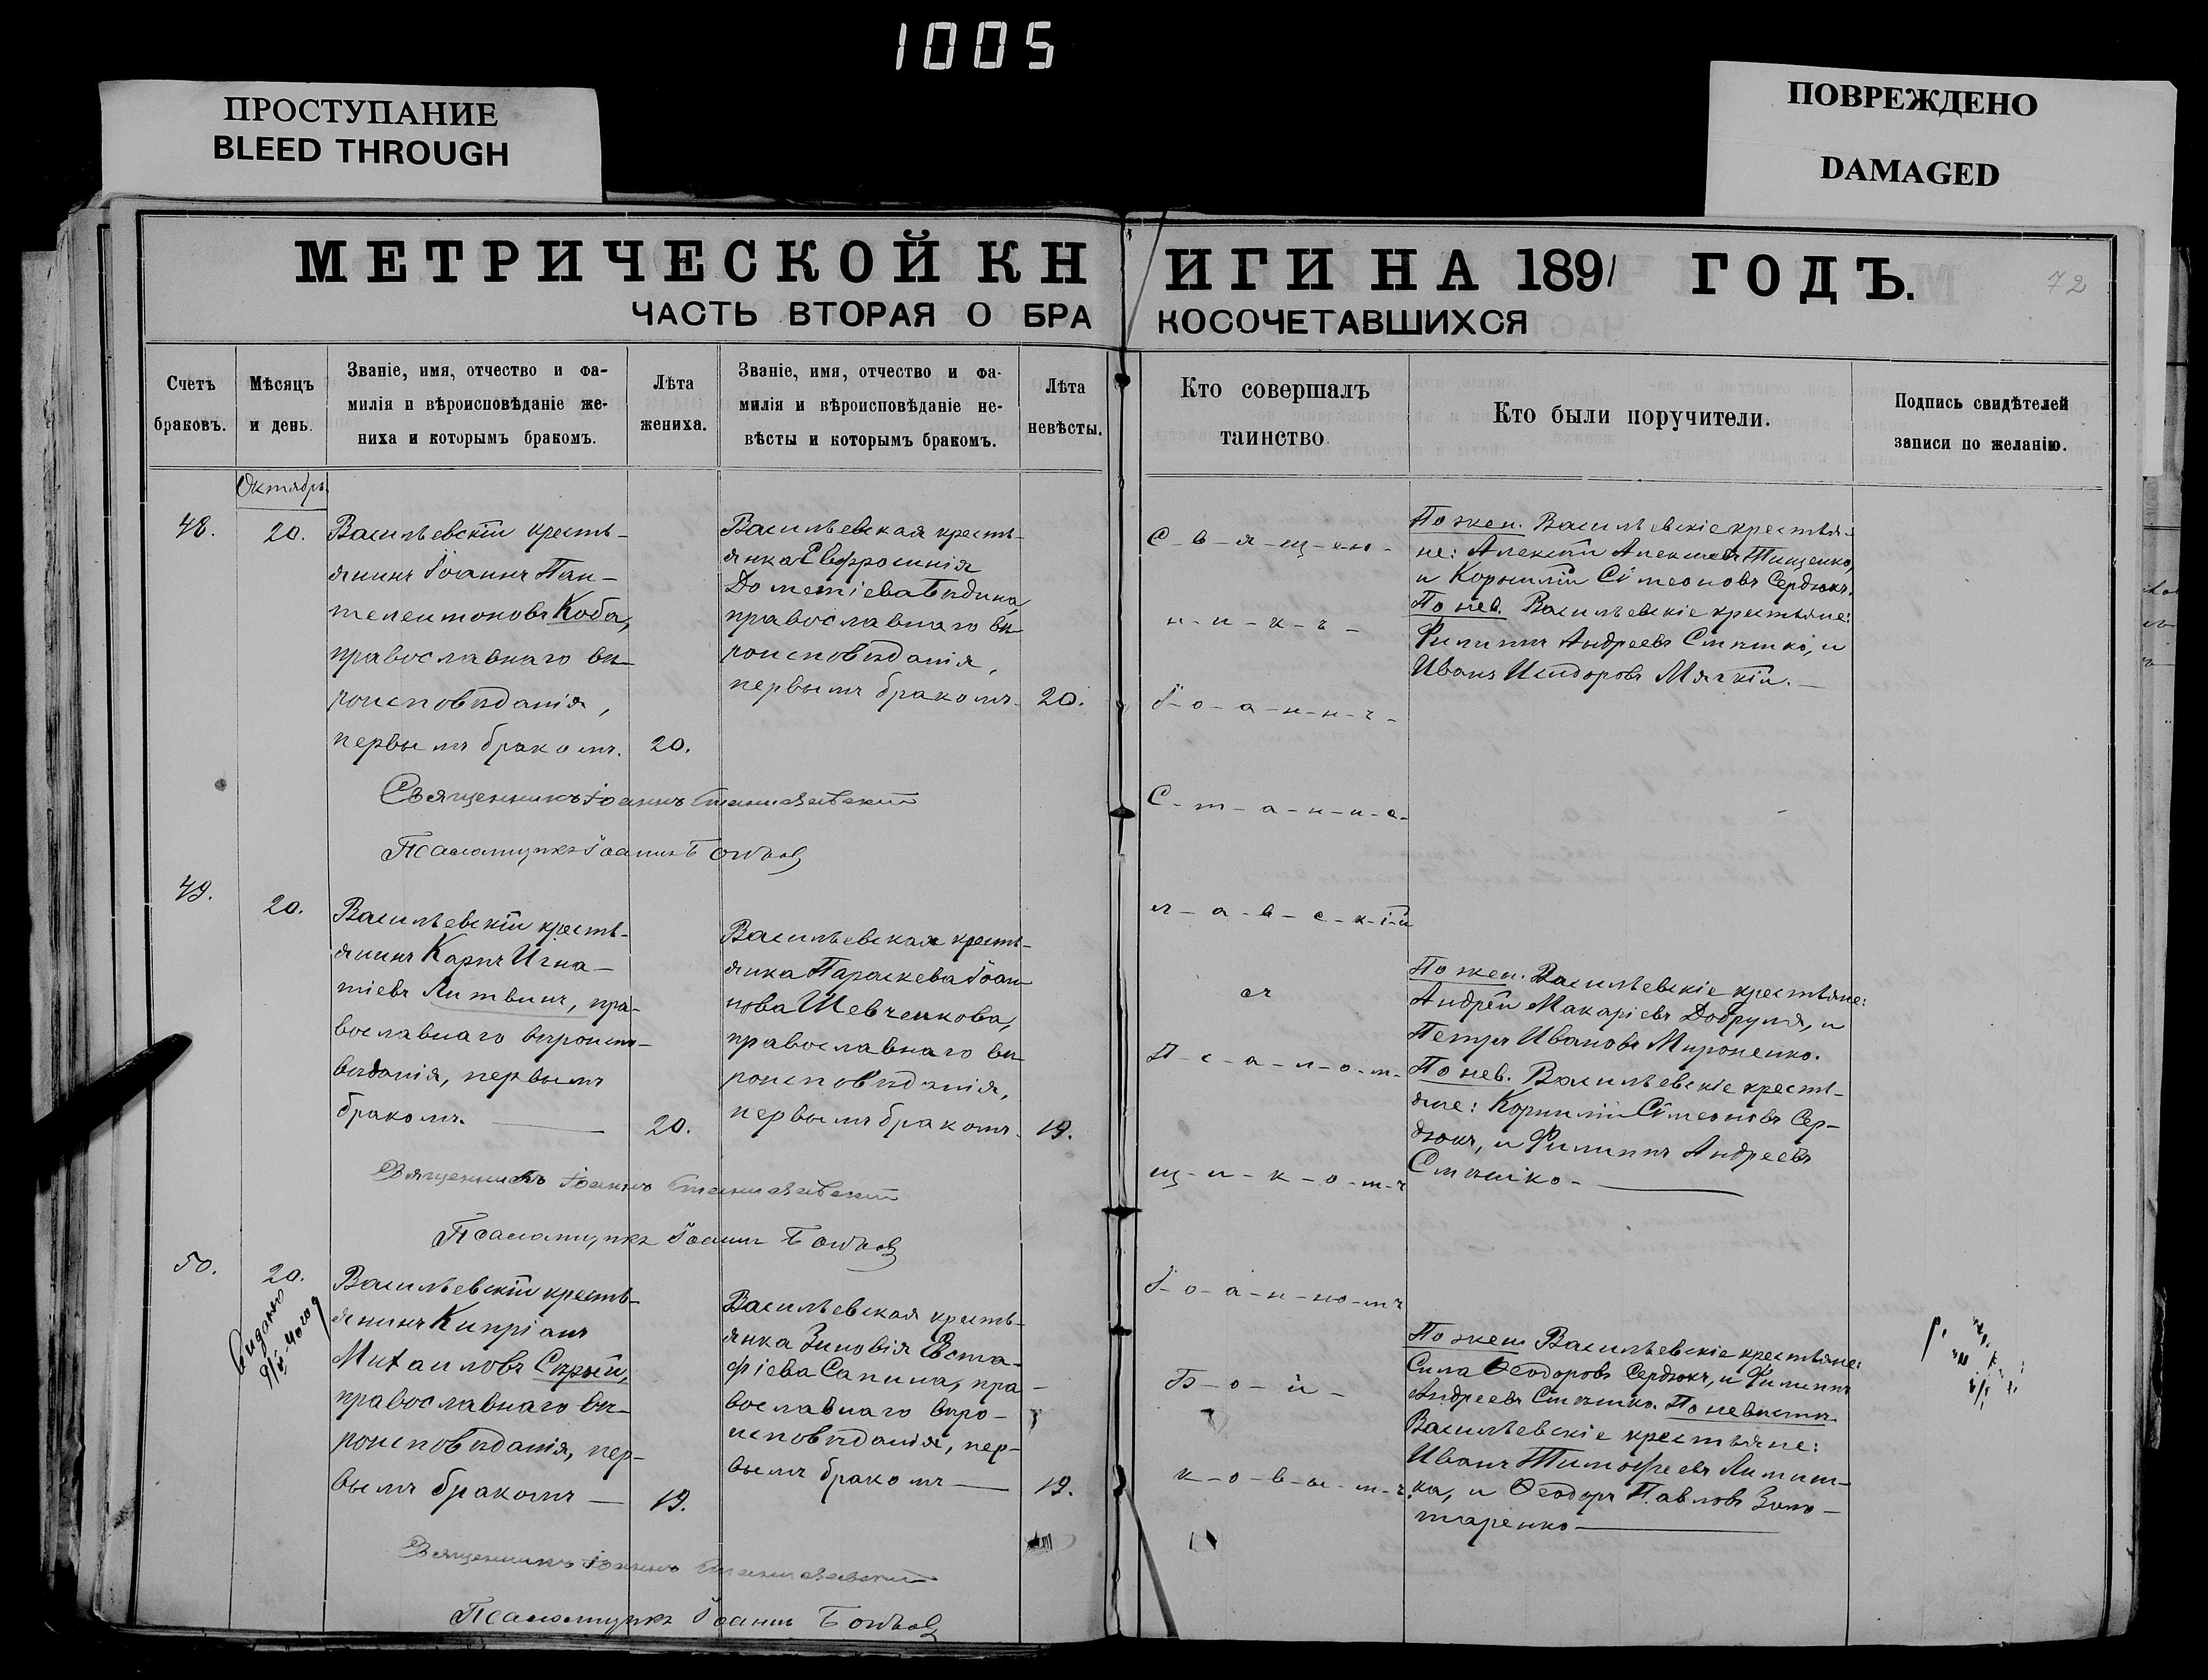 1005
ПРОСТУПАНИЕ
BLEED THROUGH
ПОВРЕЖДЕНО
DAMAGED
МЕТРИЧЕСКОЙ КНИГИ НА 1891 ГОДЪ.
72
ЧАСТЬ ВТОРАЯ О БРАКОСОЧЕТАВШИХСЯ
Счетъ
браковъ.
Мѣсяцъ
и день.
Званіе, имя, отчество и фа-
милія и вѣроисповѣданіе же-
ниха и которымъ бракомъ.
Лѣта
жениха.
Званіе, имя, отчество и фа-
милія и вѣроисповѣданіе не-
вѣсты и которымъ бракомъ.
Лѣта
невѣсты.
Кто совершалъ
таинство.
Кто были поручители.
Подпись свидѣтелей
записи по желанію.
Октябрь.
48.
20.
Васильевскій кресть-
янинъ Іоаннъ Пан-
телеимоновъ Коба,
православнаго вѣ-
роисповѣданія,
первымъ бракомъ.
20.
Васильевская кресть-
янка Евфросинія
Дометіева
православнаго вѣ-
роисповѣданія,
первымъ бракомъ.
20.
По жен. Васильевскіе крестья-
не: Алексій Алексіевъ Тищенко,
и Корнилій Сімеоновъ Сердюкъ.
По нев. Васильевскіе крестьяне:
Филиппъ Андреевъ и
Иванъ Исидоровъ Мягкій.
Священникъ Іоаннъ Станиславскій
Псаломщикъ Іоаннъ
49.
20.
Васильевскій кресть-
янинъ Карпъ Игна-
тіевъ Литвинъ, пра-
вославнаго вѣроиспо-
вѣданія, первымъ
бракомъ.
20.
Васильевская кресть-
янка Параскева Іоан-
нова Шевченкова,
православнаго вѣ-
роисповѣданія,
первымъ бракомъ.
19.
По жен. Васильевскіе крестьяне:
Андрей Макаріевъ и
Петръ Ивановъ Мироненко.
По нев. Васильевскіе кресть-
яне: Корнилій Сімеоновъ Сер-
дюкъ, и Филиппъ Андреевъ
Священникъ Іоаннъ Станиславскій
Псаломщикъ Іоаннъ
50.
20.
Видано
Васильевскій кресть-
янинъ Кипріанъ
Михаиловъ Сѣрый,
православнаго вѣ-
роисповѣданія, пер-
вымъ бракомъ
19.
Васильевская кресть-
янка Зиновія Евста-
фіева Сапина, пра-
вославнаго вѣро-
исповѣданія, пер-
вымъ бракомъ
19.
По жен. Васильевскіе крестьяне:
Сила Ѳеодоровъ Сердюкъ, и Филиппъ
Андреевъ По невѣстѣ.
Васильевскіе крестьяне:
Иванъ Тимофеевъ
и Ѳеодоръ Павловъ Золо-
таренко
Священникъ Іоаннъ Станиславскій
Псаломщикъ Іоаннъ
С-в-я-щ-ен-
н-и-к-ъ-
І-о-а-н-н-ъ-
С-т-а-н-и-с-
л-а-в-с-к-ій
съ
П-с-а-л-о-м-
щ-и-к-о-м-ъ
І-о-а-н-но-мъ
Б-о-й-
к-о-в-ы-м-ъ.